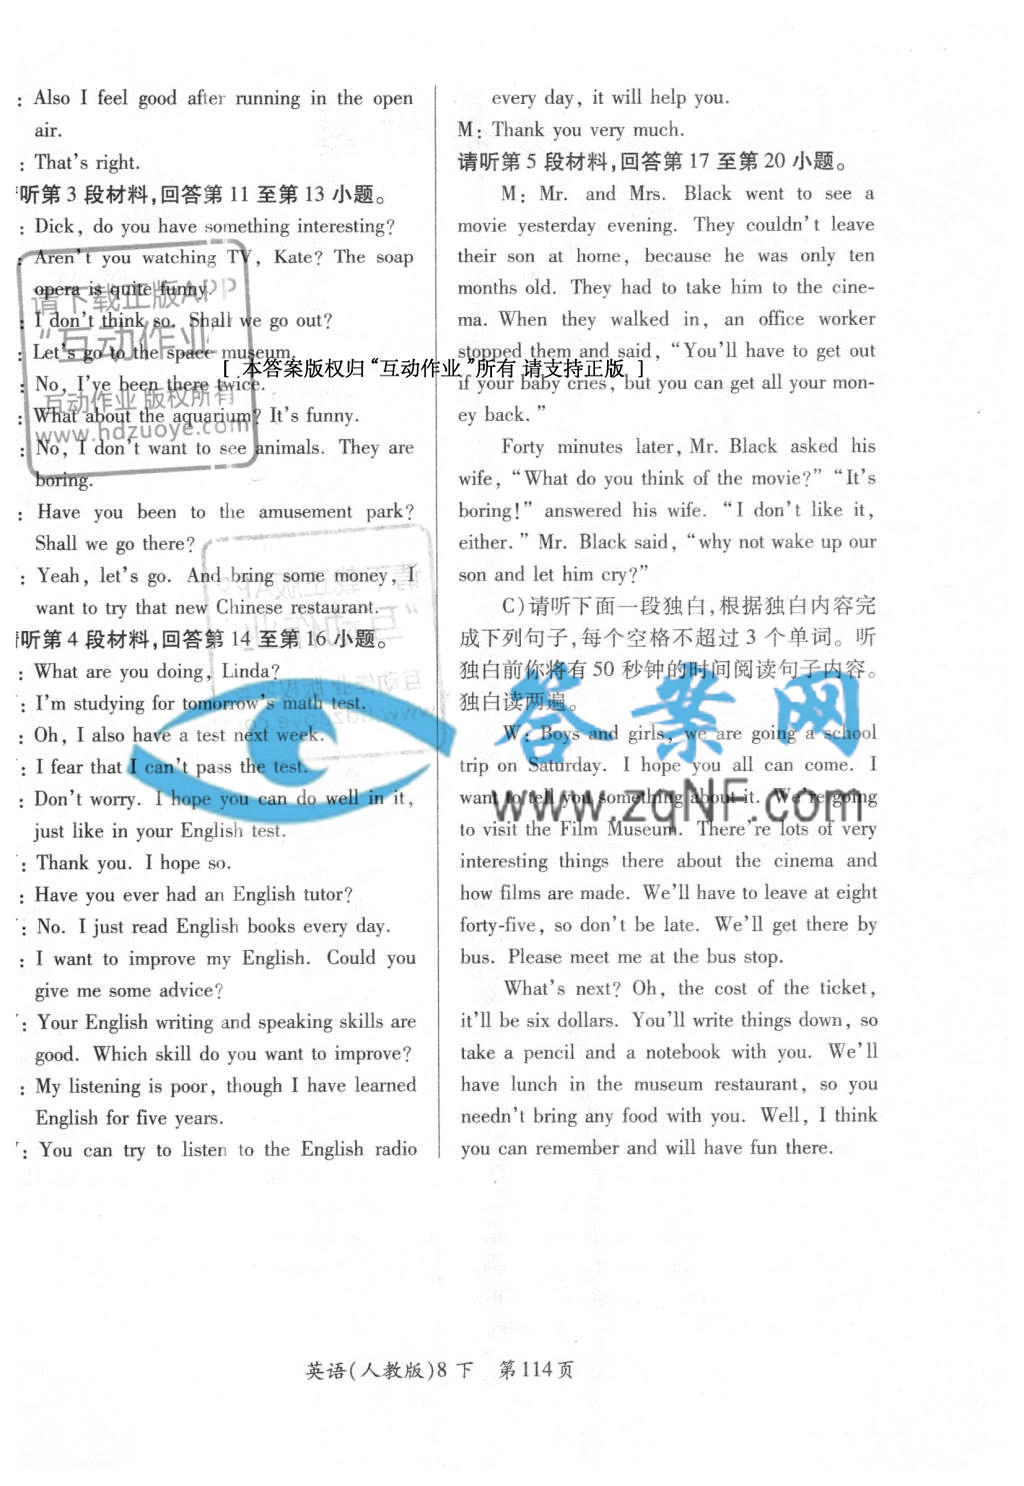 : Also I feel good after running in the open
air.
: That's right.
听第 3 段材料,回答第 11 至第 13 小题。
: Dick, do you have something interesting?
: Aren't you watching TV, Kate? The soap
opera is quite funny.
: I don't think so. Shall we go out?
: Let's go to the space museum.
: No, I've been there twice.
: What about the aquarium? It's funny.
: No, I don't want to see animals. They are
boring.
: Have you been to the amusement park?
Shall we go there?
: Yeah, let's go. And bring some money, I
want to try that new Chinese restaurant.
听第 4 段材料,回答第 14 至第 16 小题。
: What are you doing, Linda?
: I'm studying for tomorrow's math test.
: Oh, I also have a test next week.
: I fear that I can't pass the test.
: Don't worry. I hope you can do well in it,
just like in your English test.
: Thank you. I hope so.
: Have you ever had an English tutor?
: No. I just read English books every day.
: I want to improve my English. Could you
give me some advice?
: Your English writing and speaking skills are
good. Which skill do you want to improve?
: My listening is poor, though I have learned
English for five years.
: You can try to listen to the English radio
every day, it will help you.
M: Thank you very much.
请听第 5 段材料,回答第 17 至第 20 小题。
M: Mr. and Mrs. Black went to see a
movie yesterday evening. They couldn't leave
their son at home, because he was only ten
months old. They had to take him to the cine-
ma. When they walked in, an office worker
stopped them and said, “You'll have to get out
if your baby cries, but you can get all your mon-
ey back.”
Forty minutes later, Mr. Black asked his
wife, “What do you think of the movie?” “It's
boring!” answered his wife. “I don't like it,
either.” Mr. Black said, “why not wake up our
son and let him cry?”
C)请听下面一段独白,根据独白内容完
成下列句子,每个空格不超过 3 个单词。听
独白前你将有 50 秒钟的时间阅读句子内容。
独白读两遍。
W: Boys and girls, we are going a school
trip on Saturday. I hope you all can come. I
want to tell you something about it. We're going
to visit the Film Museum. There're lots of very
interesting things there about the cinema and
how films are made. We'll have to leave at eight
forty-five, so don't be late. We'll get there by
bus. Please meet me at the bus stop.
What's next? Oh, the cost of the ticket,
it'll be six dollars. You'll write things down, so
take a pencil and a notebook with you. We'll
have lunch in the museum restaurant, so you
needn't bring any food with you. Well, I think
you can remember and will have fun there.
英语(人教版)8 下 第114页
[ 本答案版权归“互动作业”所有 请支持正版 ]
请下载正版APP
“互动作业
互动作业 版权所有
www.hdzuoye.com
答案网
www.zqNF.com